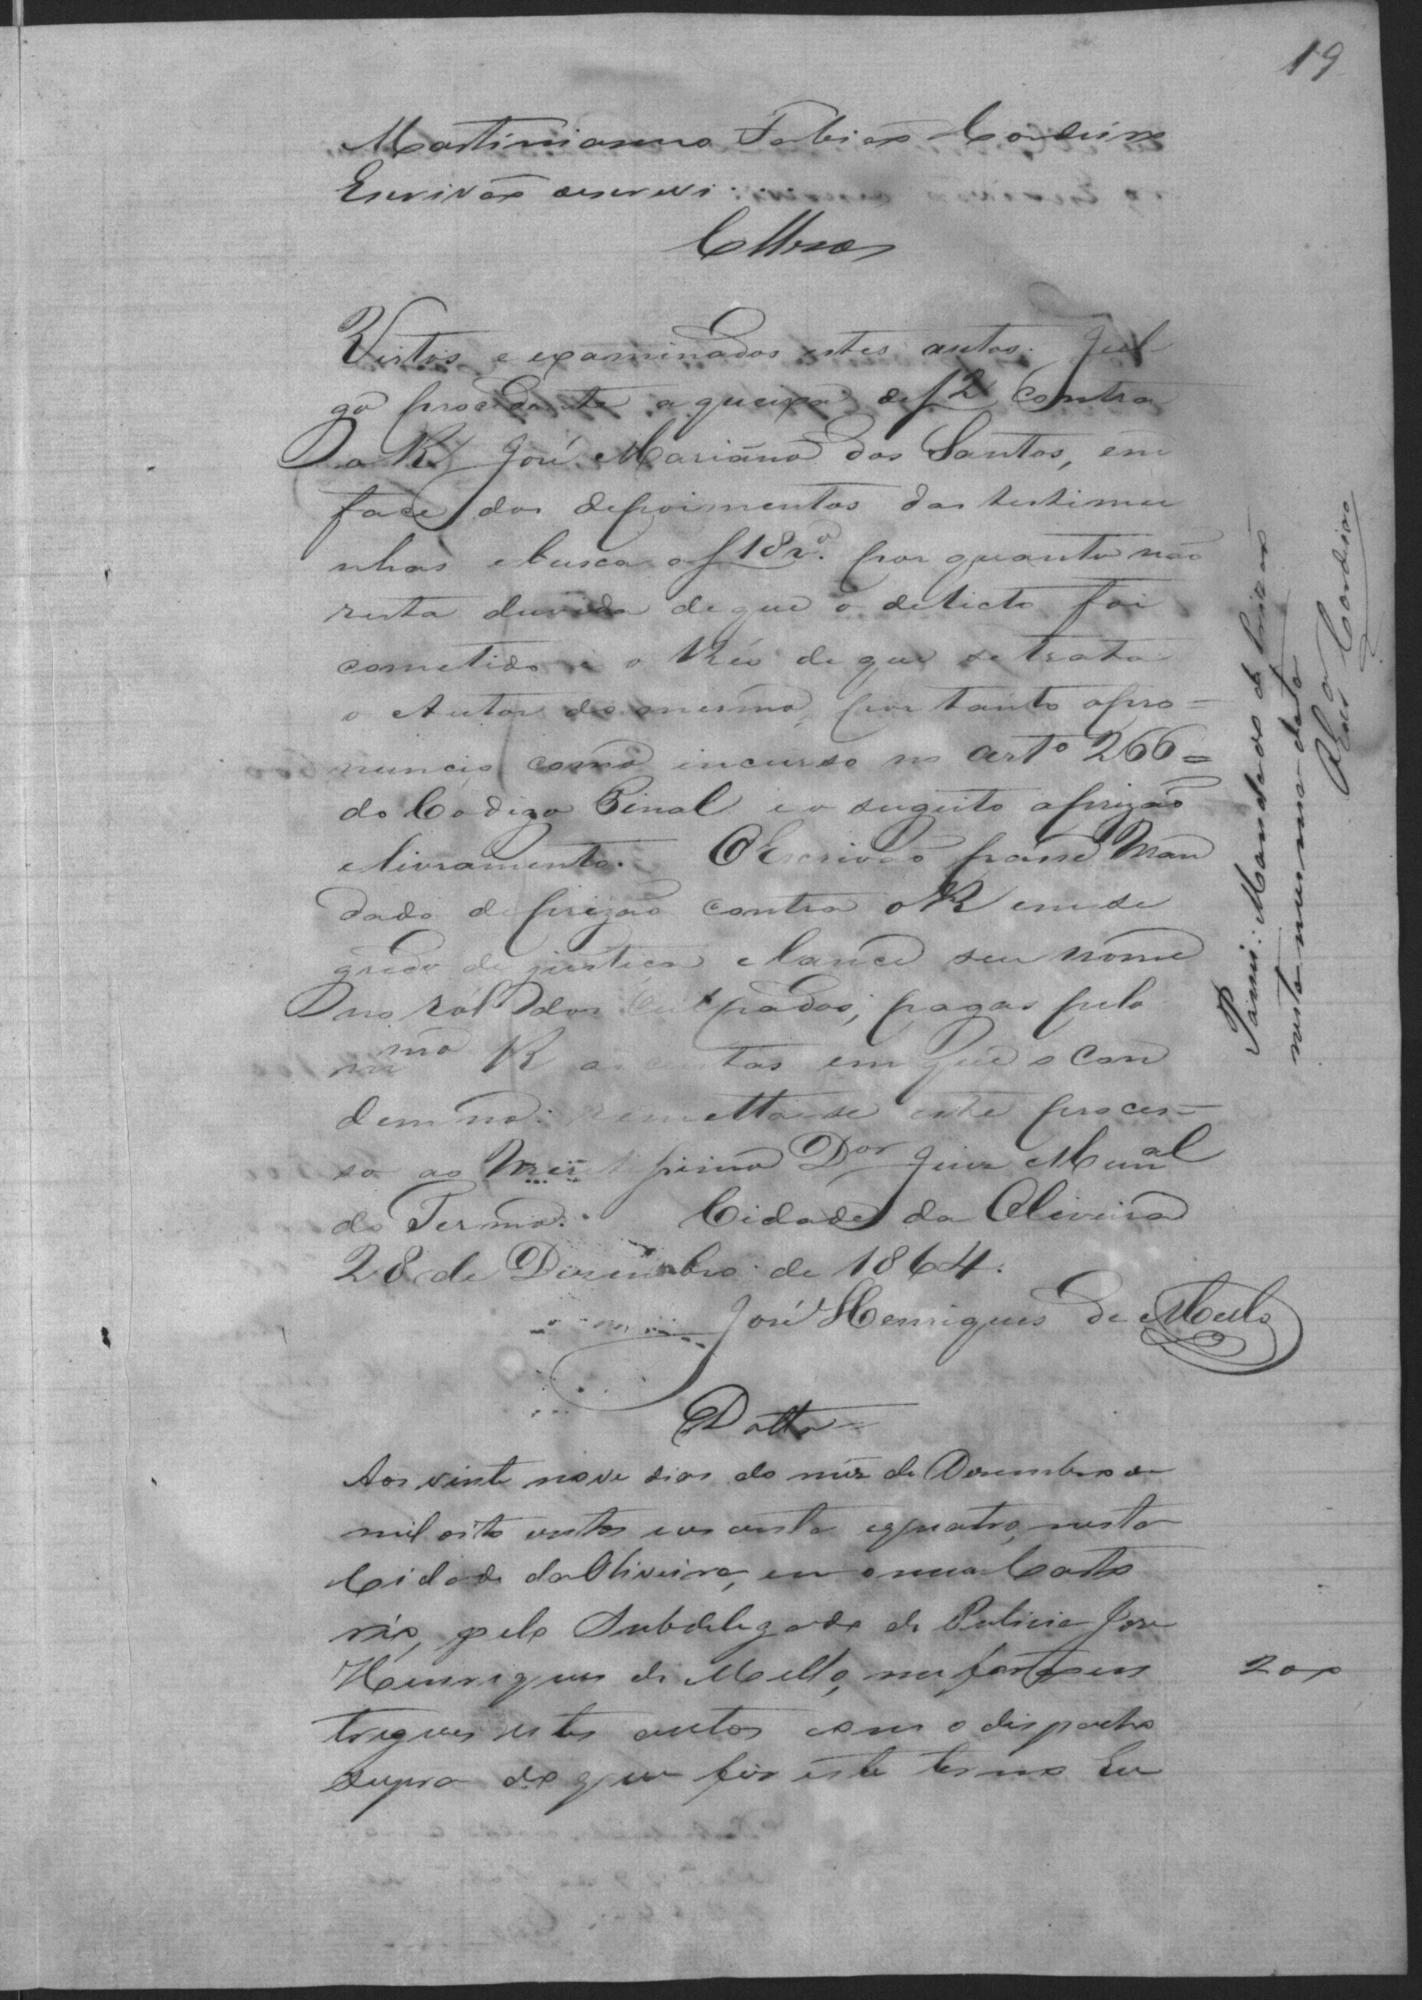 19
Martinianno Tobias Cordeiro
Escrivão escrevi.
Cllzos
Vistos e examinados estes autos. Jul
go procedente a queixa de f 2 contra
o R. José Mariano dos Santos, em
face dos depoimentos das testimu
nhas e busca a f 18 v.º por quanto não
resta duvida de que o delicto foi
cometido e o Réo de que se trata
o Autor do mesmo, por tanto o pro=
nuncio como incurso no artº 266=
do Código Penal e o sugeito a prizão
e livramento. O Escrivão passe Man
dado de prizão contra o R em se
gredo de justiça e lance seu nome
no ról dos culpados; pagas pelo
mmo R as custas em que o con
demno: remetta-se este proces=
so ao primo Dor Juiz Munal
do Termo. Cidade da Oliveira
28 de Dizembro de 1864.
José Henriques de Mello
Datta
Aos vinte nove dias do mez de Dezembro de
mil oito centos e secenta e quatro, nesta
Cidade da Oliveira, em o meu Carto
rio, pelo Subdelegado de Policia José
Henriques de Mello, me forão en
tregues estes autos com o dispacho
supra do que fiz este termo Eu
200
Passei: Mandados de prizão
nesta mesma data
Cordeiro